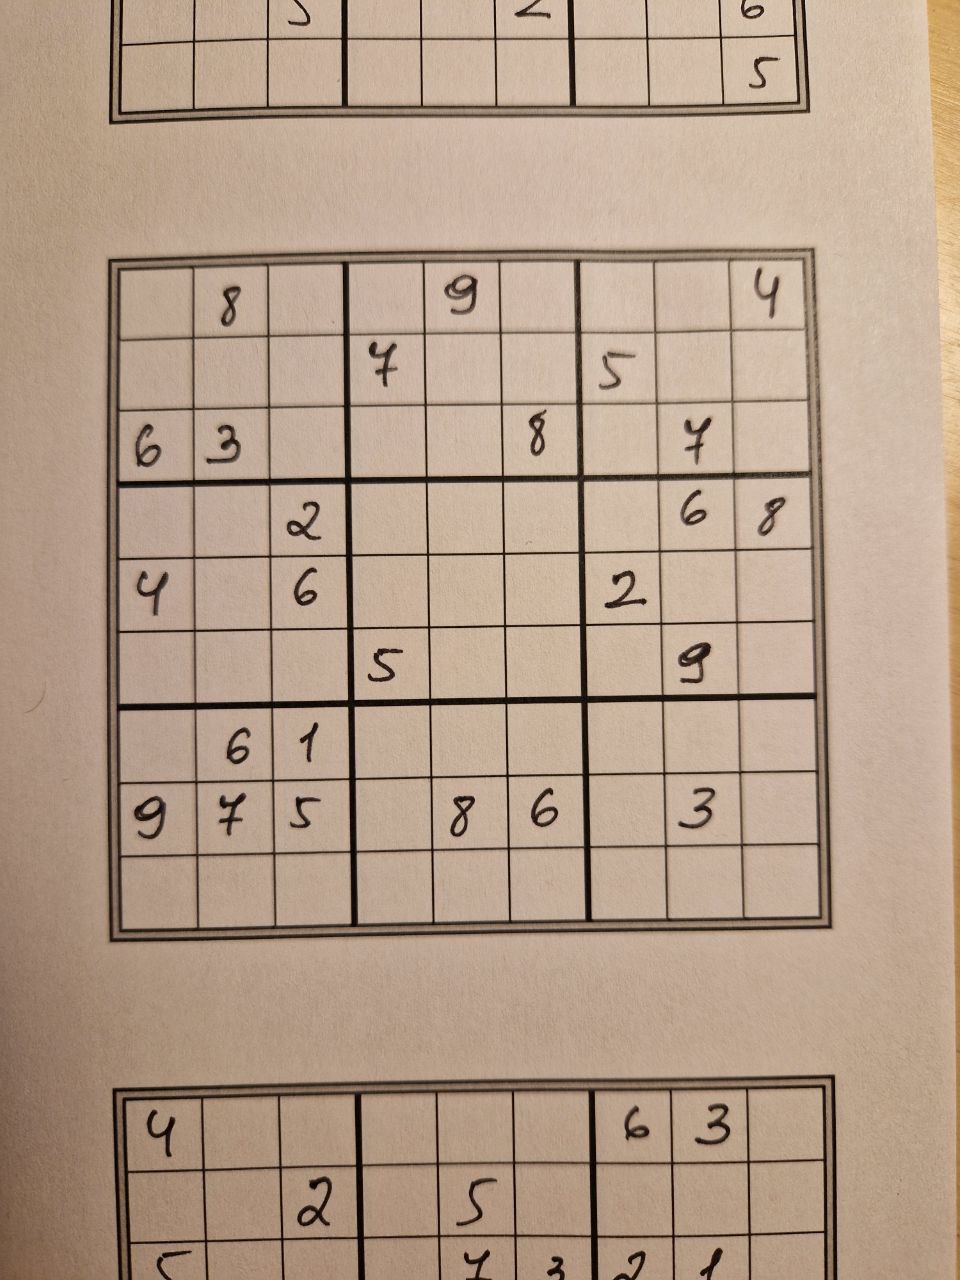 5 2 6
5
8 9 4
7 5
6 3 8 7
2 6 8
4 6 2
5 9
6 1
9 7 5 8 6 3
4 6 3
2 5
5 7 3 2 1